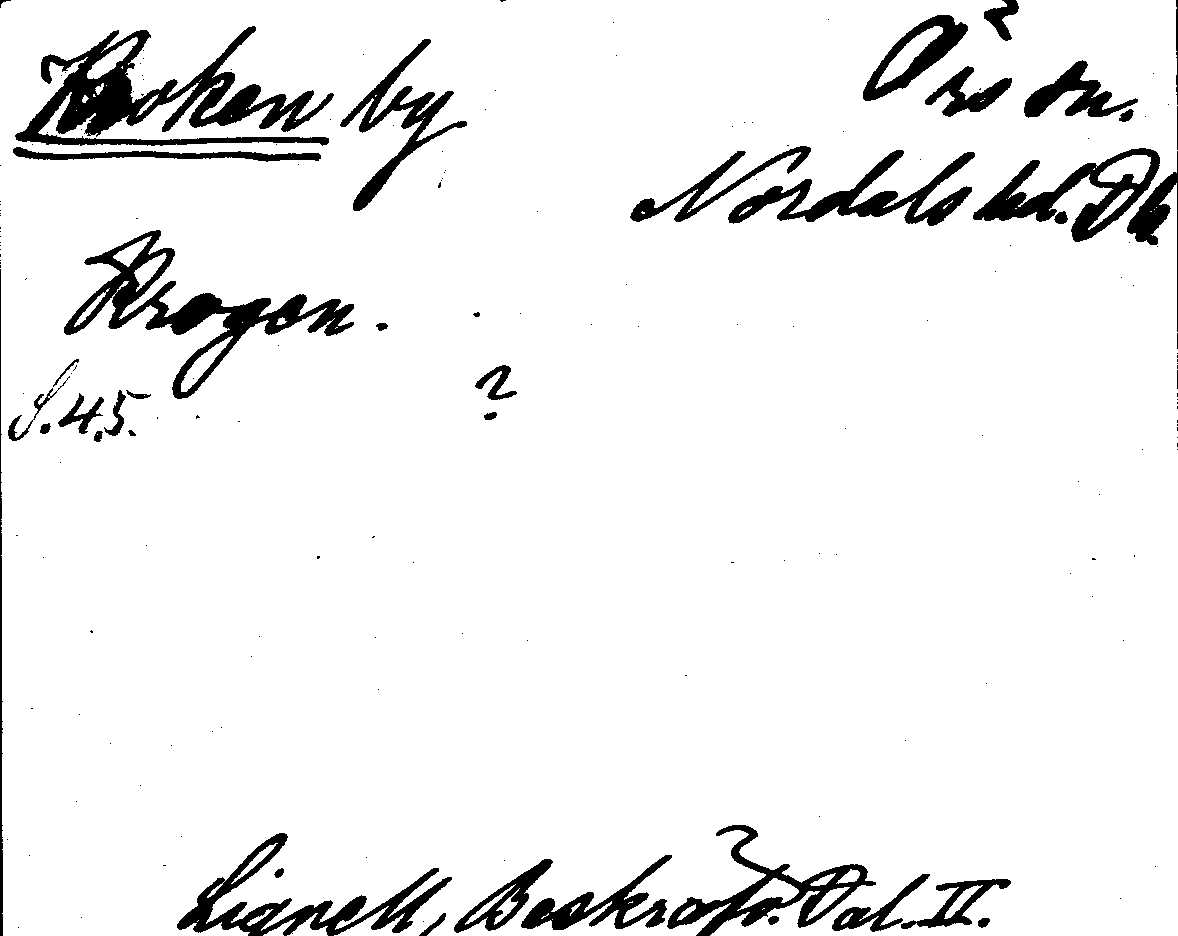 Kroken by
Ärs sn.
Nordals hd. Dls
Krogen.
S. 45.
?
Lignell, Beskrifn. Dal. II.